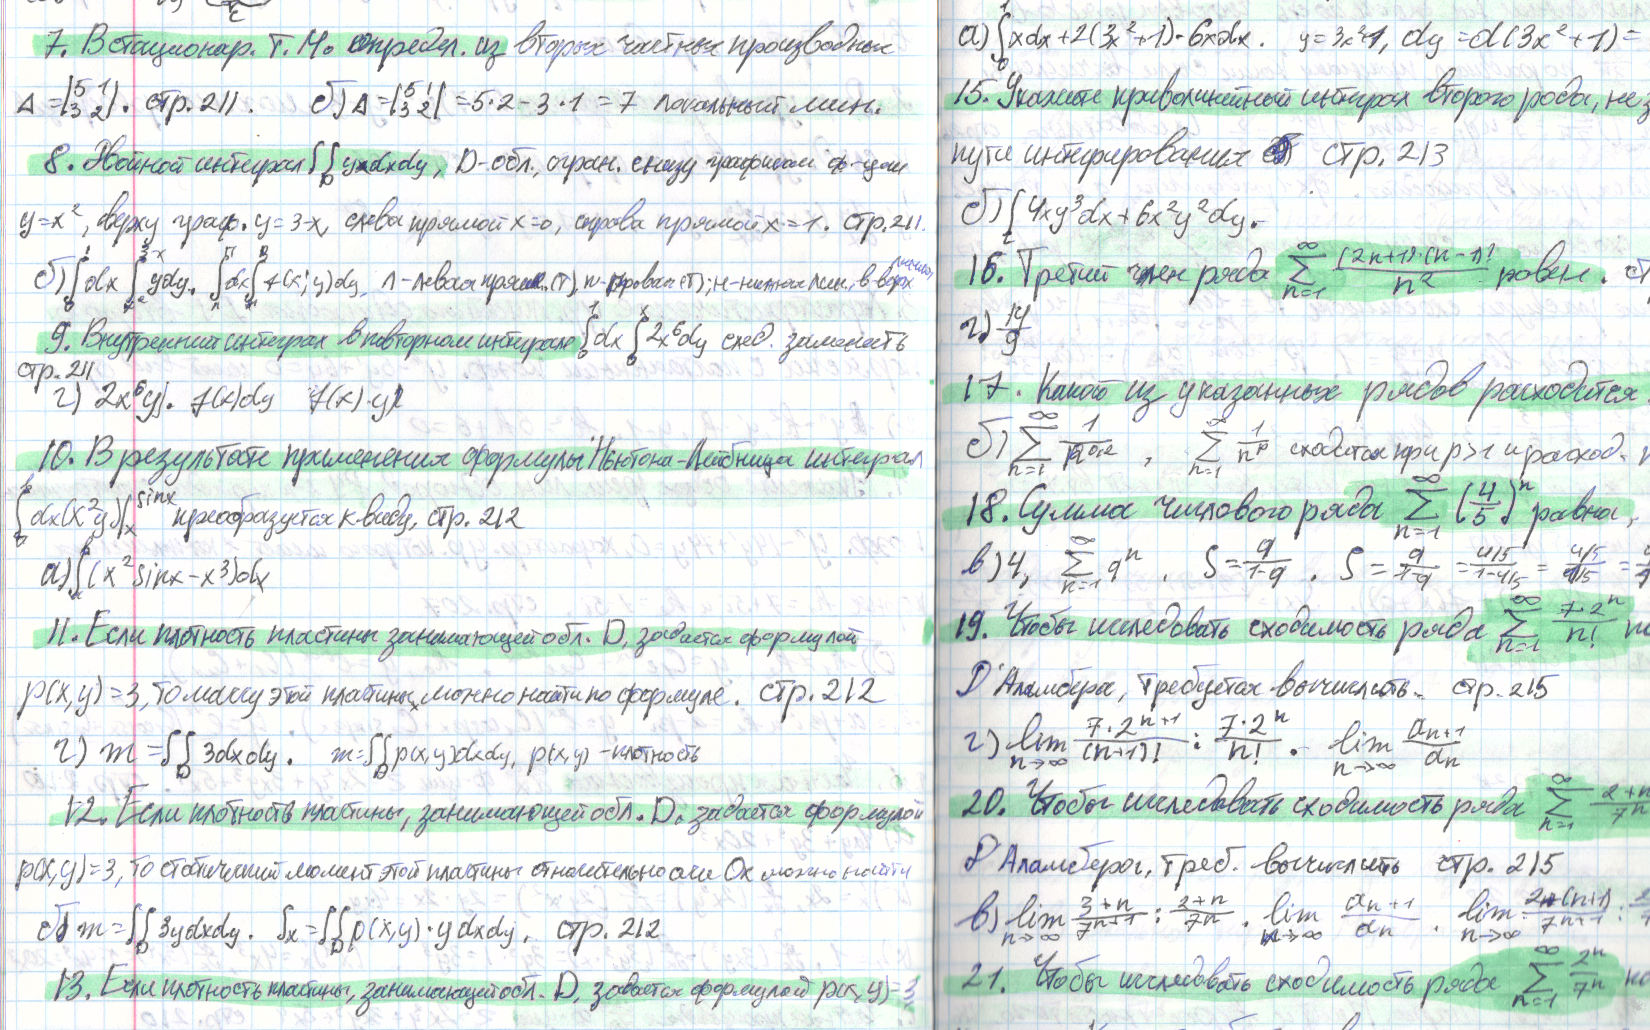 7. В стационар. т. М₀ определ. из вторых частных производных
Δ = |5 1; 3 2|. стр. 211. б) Δ = |5 1; 3 2| = 5·2 - 3·1 = 7 локальный мин.
8. Двойной интеграл ∬_D yxdxdy, D-обл., огран. снизу графиком ф-ции
y=x², сверху граф. y=3-x, слева прямой x=0, справа прямой x=1. стр. 211.
б) ∫₀¹ dx ∫_{x²}^{3-x} ydy. ∫dx∫f(x;y)dy, л-левая прям. (т), п-правая (т); н-нижняя лин., в-верх
9. Внутренний интеграл в повторном интеграле ∫₀¹ dx ∫₀ˣ 2x⁶dy след. заменить
стр. 211
г) 2x⁶y|. f(x)dy f(x)·y|
10. В результате применения формулы Ньютона-Лейбница интеграл
∫dx(x²y)|ₓ^{sinx} преобразуется к виду, стр. 212
а) ∫(x²sinx-x³)dx
11. Если плотность пластины занимающей обл. D, задается формулой
p(x,y)=3, то массу этой пластины можно найти по формуле. стр. 212
г) m=∬_D 3dxdy. m=∬_D p(x,y)dxdy, p(x,y)-плотность
12. Если плотность пластины, занимающей обл. D, задается формулой
p(x,y)=3, то статический момент этой пластины относительно оси Ox можно найти
б) m=∬_D 3ydxdy. Sₓ=∬_D p(x,y)·ydxdy, стр. 212
13. Если плотность пластины, занимающей обл. D, задается формулой p(x,y)=3
а) ∫₀¹ xdx+2(3x²+1)·6xdx. y=3x²+1, dy=d(3x²+1)=
15. Укажите криволинейный интеграл второго рода, не з
пути интегрирования стр. 213
б) ∫_L 4xy³dx+6x²y²dy.
16. Третий член ряда ∑_{n=1}^∞ (2n+1)·(n-1)!/n² равен.
г) 14/9
17. Какой из указанных рядов расходится
б) ∑_{n=1}^∞, ∑_{n=1}^∞ 1/nᵖ сходится при p>1 и расход.
18. Сумма числового ряда ∑_{n=1}^∞ (4/5)ⁿ равна,
в) 4, ∑_{n=1}^∞ qⁿ. S=q/(1-q). S=q/(1-q)=(4/5)/(1-4/5)=(4/5)/(1/5)=
19. Чтобы исследовать сходимость ряда ∑_{n=1}^∞ 7·2ⁿ/n! по
Д'Аламбера, требуется вычислить. стр. 215
г) lim_{n→∞} 7·2ⁿ⁺¹/(n+1)! : 7·2ⁿ/n!. lim_{n→∞} aₙ₊₁/aₙ
20. Чтобы исследовать сходимость ряда ∑_{n=1}^∞ 2+n/7ⁿ
Д'Аламбера, треб. вычислить стр. 215
в) lim_{n→∞} 3+n/7ⁿ⁺¹ : 2+n/7ⁿ. lim_{n→∞} aₙ₊₁/aₙ. lim_{n→∞} 2+(n+1)/7ⁿ⁺¹ :
21. Чтобы исследовать сходимость ряда ∑_{n=1}^∞ 2ⁿ/7ⁿ